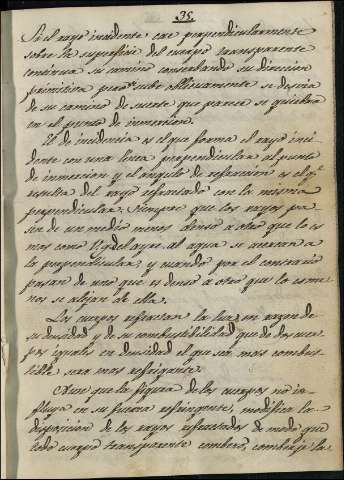 35.
Si el rayo incidente cae perpendicularmente
sobre la superficie del cuerpo transparente
continua su camino conserbando su direccion
primitiva pero si cube obliicuamente se desvia
de su camino de suerte que parece se quiebra
en el punto de inmersion.
El de incidencia es el que forma el rayo inci
dente con una linea perpendicular al punto
de inmercion y el angulo de refraccion es el q.e
resulta del rayo refractado con la misma
perpendicular; siempre que los rayos pa
sen de un medio menos denso a otro que lo es
mas como V.g. del ayre al agua se acercan a
la perpendicular; y cuando por el contrario
pasan de uno que es denso a otro que lo es me
nos se alejan de ella.
Los cuerpos refractan la luz en razon de
su densidad y de su combustibilidad que de dos cuer
pos iguales en densidad el que sea mas combus
tible sera mas refringente.
Aun que la figura de los cuerpos no in-
fluya en su fuerza refringente, modifica la
disposicion de los rayos refractados de modo que
todo cuerpo transparente combexo, combeje la